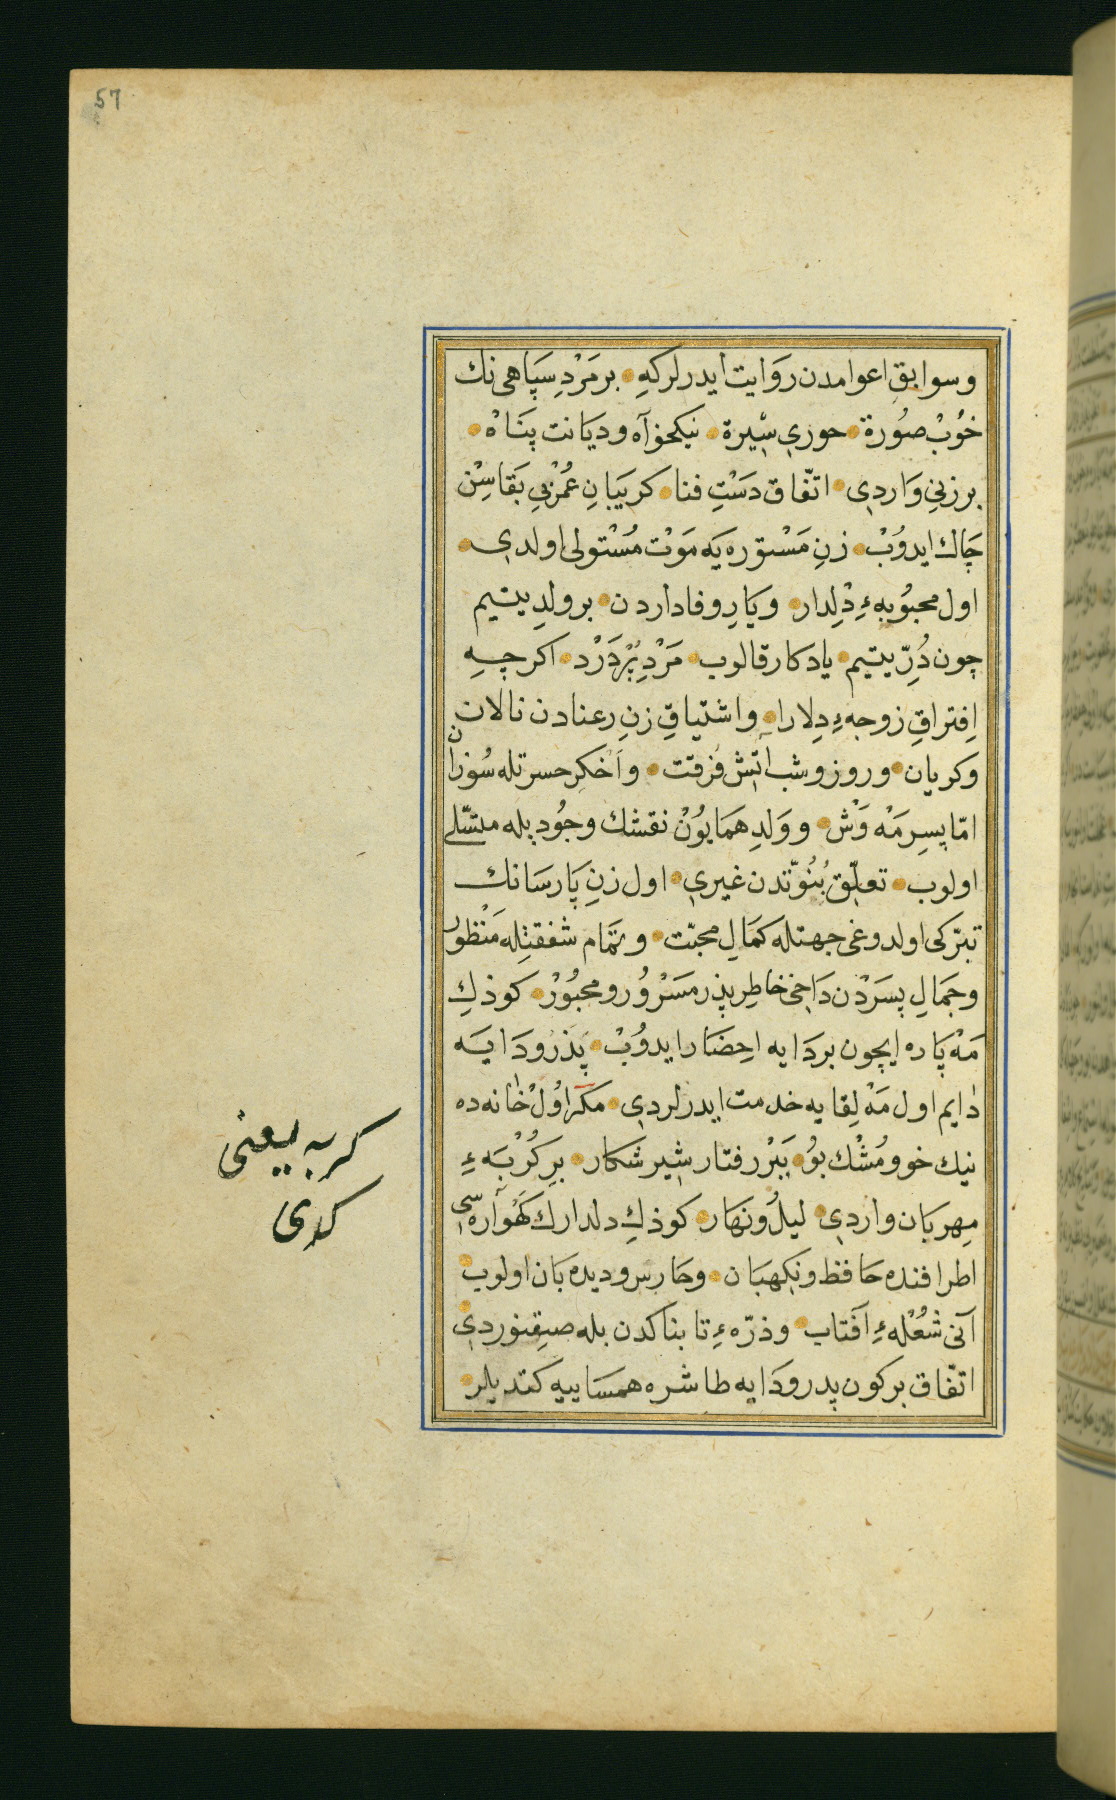 57
وسوابق اعوامدن روایت ایدرلر كهِ برمَرْدِ سِپَاهی نك
خُوبْ صُورة حوری سٖیرة نیكخوآه ودیَانت پَنَاهْ
برزنی وَاردی اتّفاق دَسْتِ فنا كریبَانِ عُمْرِ بَقاسِنْ
چَاك ایدوُبْ زنِ مَسْتوره یَه مَوْت مُسْتولی اولدی
اول محبُوبهءِ دِلِدار ویَارِ وفاداردن برولدِ یتیم
چون دُرِّ یتیم یادكار قالوب مَرْدِ پُرْدَرْد اكرچهِ
اِفتراقِ زوجهءِ دِلارا واشتیاقِ زنِ رعنادن نالان
وكریان وروز وشب آتشِ فرْقت وآخكرِ حسرتله سُوزان
امّا پسرِ مَهْ وَشْ و وَلدِ همَایوُنْ نقشك وجُودیله متسلّی
اولوب تعلّق بُنُوّتدن غیری اول زنِ پَارسَانك
تبرّكی اولدوغی جهتله كمَالِ محبّت وتمَام شفقتِله مَنْظور
وجَمالِ پسرْدن دَاخی خاطرِ پدر مَسْرُور ومحبُوْر كودكِ
مَهْ پَاره ایچون بردَایه اِحضَار ایدوُبْ پدَر ودَایَه
دٰایم اول مَهْ لِقایه خدمت ایدرلردی مكر اوُلْ خٰانه ده
نیك خو ومُشْك بوُ بَبْر رفتار شیر شكار بر كُرْبَهءِ
مِهربَان واردی لیلُ ونهَار كودكِ دلدارك كَهْوآره سی
اطرافنده حَافظ ونكهبَان وحَارس ودیده بَان اولوب
آنی شُعْلهءِ آفتاب وذرّهءِ تابناكدن بله صیقنوردی
اتّفاق بركون پدر ودَایه طاشره همسَاییه كتدیلر
كربه یعنی
كدی